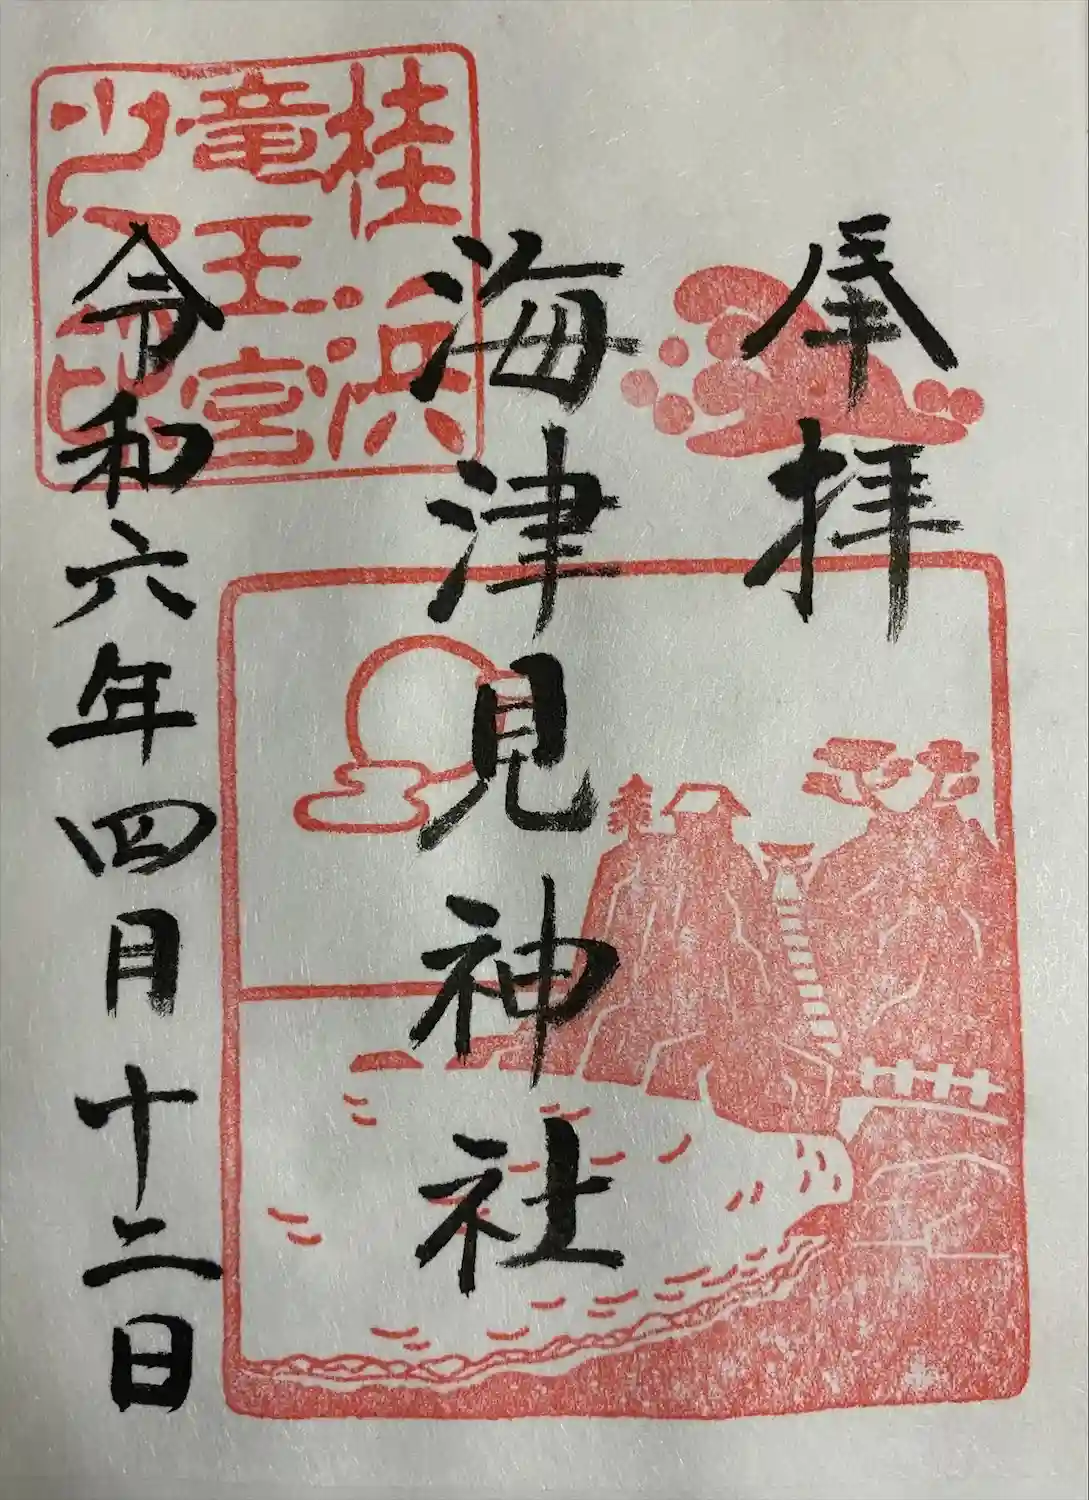 奉拝
海津見神社
桂浜
竜王宮
令和六年四月十二日